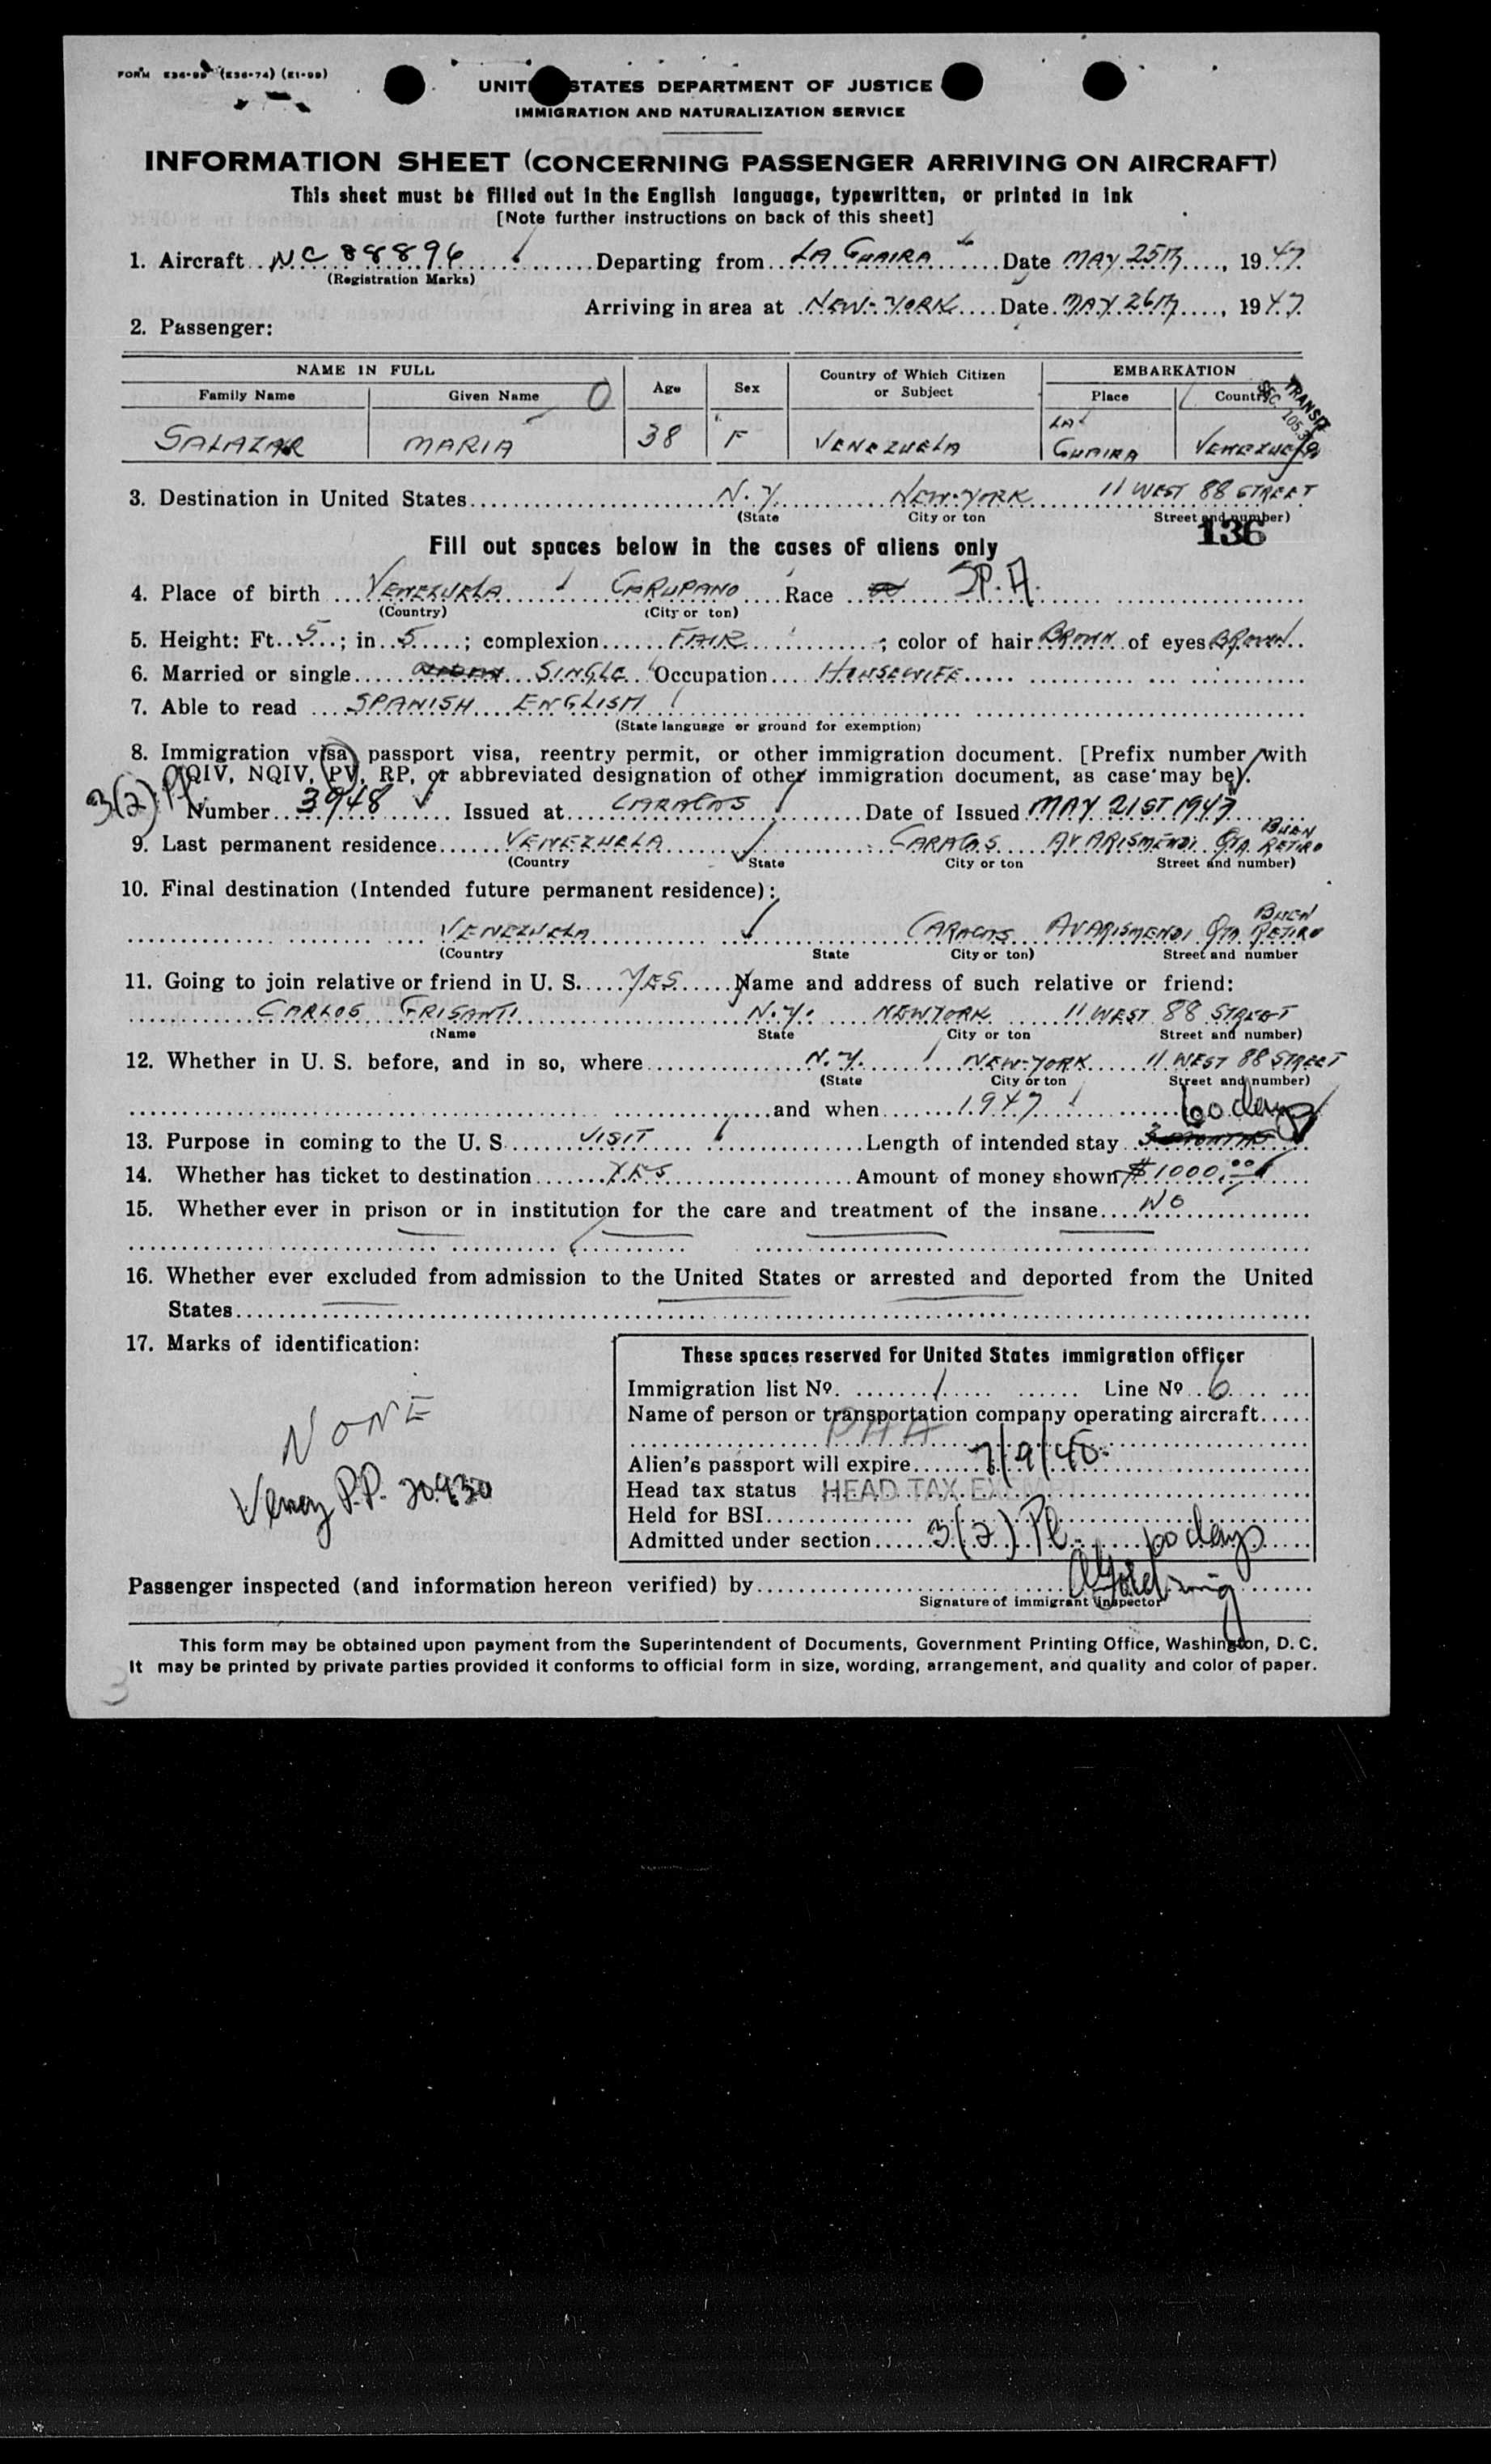 FORM E36-99 (E36-74) (E1-99)
UNITED STATES DEPARTMENT OF JUSTICE
IMMIGRATION AND NATURALIZATION SERVICE
INFORMATION SHEET (CONCERNING PASSENGER ARRIVING ON AIRCRAFT)
This sheet must be filled out in the English language, typewritten, or printed in ink
[Note further instructions on back of this sheet]
1. Aircraft NC 88896 Departing from LA GUAIRA Date MAY 25TH, 1947
(Registration Marks)
Arriving in area at NEW-YORK Date MAY 26TH, 1947
2. Passenger:
NAME IN FULL Age Sex Country of Which Citizen or Subject EMBARKATION
Family Name Given Name Place Country
TRANSIT SEC. 105.3
SALAZAR MARIA 38 F VENEZUELA LA GUAIRA VENEZUELA
3. Destination in United States N.Y. NEW-YORK 11 WEST 88 STREET
(State City or ton Street and number)
136
Fill out spaces below in the cases of aliens only
4. Place of birth VENEZUELA CARUPANO Race SP. A.
(Country) (City or ton)
5. Height: Ft. 5; in 5; complexion FAIR; color of hair BROWN of eyes BROWN
6. Married or single SINGLE Occupation HOUSEWIFE
7. Able to read SPANISH ENGLISH
(State language or ground for exemption)
8. Immigration visa, passport visa, reentry permit, or other immigration document. [Prefix number with
QIV, NQIV, PV, RP, or abbreviated designation of other immigration document, as case may be].
3(2) Pl. Number 3948 Issued at CARACAS Date of Issued MAY 21ST 1947
9. Last permanent residence VENEZUELA CARACAS AV ARISMENDI QTA BUEN RETIRO
(Country State City or ton Street and number)
10. Final destination (Intended future permanent residence):
VENEZUELA CARACAS AV ARISMENDI QTA. BUEN RETIRO
(Country State City or ton) Street and number
11. Going to join relative or friend in U. S. YES Name and address of such relative or friend:
CARLOS GRISANTI N.Y. NEWYORK 11 WEST 88 STREET
(Name State City or ton Street and number)
12. Whether in U. S. before, and in so, where N.Y. NEW-YORK 11 WEST 88 STREET
(State City or ton Street and number)
and when 1947 60 days
13. Purpose in coming to the U. S. VISIT Length of intended stay 3 MONTHS
14. Whether has ticket to destination YES Amount of money shown $1000.00
15. Whether ever in prison or in institution for the care and treatment of the insane NO
16. Whether ever excluded from admission to the United States or arrested and deported from the United
States
17. Marks of identification:
NONE
Venez P.P. 20930
These spaces reserved for United States immigration officer
Immigration list No. 1 Line No 6
Name of person or transportation company operating aircraft
PAA
Alien's passport will expire 7/9/48
Head tax status HEAD TAX EXEMPT
Held for BSI
Admitted under section 3(2) Pl 60 days
Passenger inspected (and information hereon verified) by
Signature of immigrant inspector
This form may be obtained upon payment from the Superintendent of Documents, Government Printing Office, Washington, D. C.
It may be printed by private parties provided it conforms to official form in size, wording, arrangement, and quality and color of paper.
3